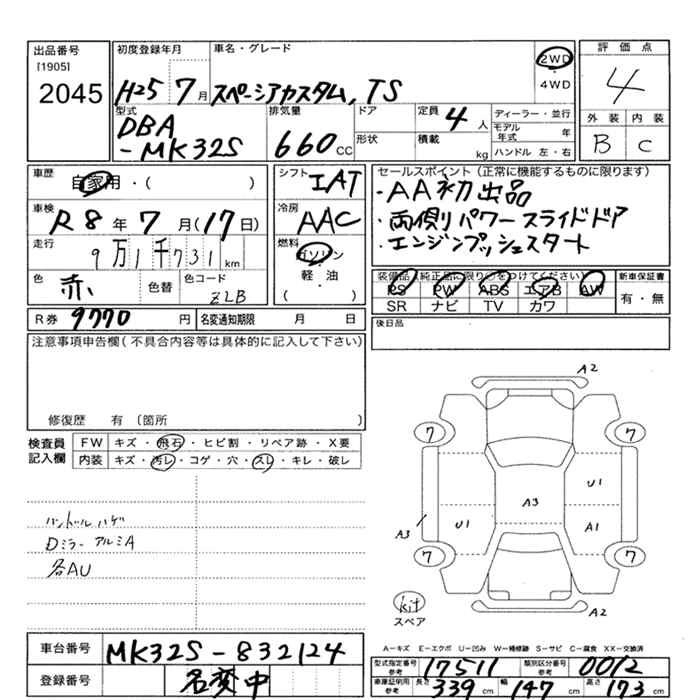 出品番号
[1905]
2045
初度登録年月
H25 7月
車名・グレード
スペーシアカスタム, TS
2WD
4WD
評価点
4
外装 内装
B C
型式
DBA
-MK32S
排気量
660 CC
ドア
形状
定員 4 人
積載 kg
ディーラー・並行
モデル年式 年
ハンドル 左・右
車歴
自家用・( )
車検
R8年7月(17日)
走行
9万1千731 km
色
赤
色替
色コード
ZLB
シフト
IAT
冷房
AAC
燃料
ガソリン
軽・油
( )
セールスポイント(正常に機能するものに限ります)
・AA初出品
・両側パワースライドドア
・エンジンプッシュスタート
装備品(純正品に限り○をつけてください)
PS PW ABS エアB AW
SR ナビ TV カワ
新車保証書
有・無
R券 9770 円
名変通知期限 月 日
後日品
注意事項申告欄(不具合内容等は具体的に記入して下さい)
修復歴 有〔箇所 〕
検査員
記入欄
FW キズ・飛石・ヒビ割・リペア跡・X要
内装 キズ・汚レ・コゲ・穴・スレ・キレ・破レ
ハンドルハゲ
Dミラー アルミA
各AU
A2
7 7
U1
A3
A3 U1 A1
7 7
kit
スペア
A2
A-キズ E-エクボ U-凹み W-補修跡 S-サビ C-腐食 XX-交換済
車台番号 MK32S-832124
登録番号 名変中
型式指定番号
参考 17511
類別区分番号
参考 0012
車庫証明用
参考 長さ 339 cm 幅 147 cm 高さ 173 cm